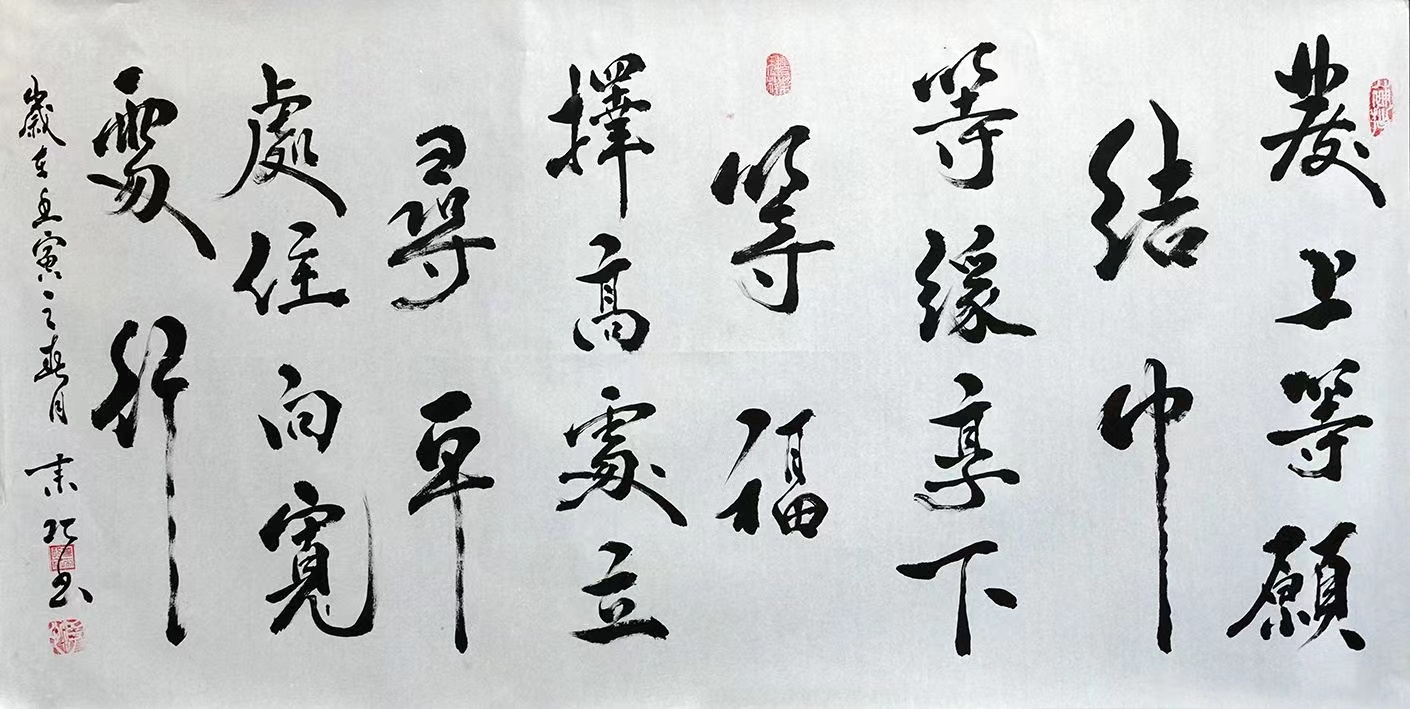 發上等願
結中
等緣享下
等福
擇高處立
尋平
處住向寬
處行
歲在壬寅之春月 书